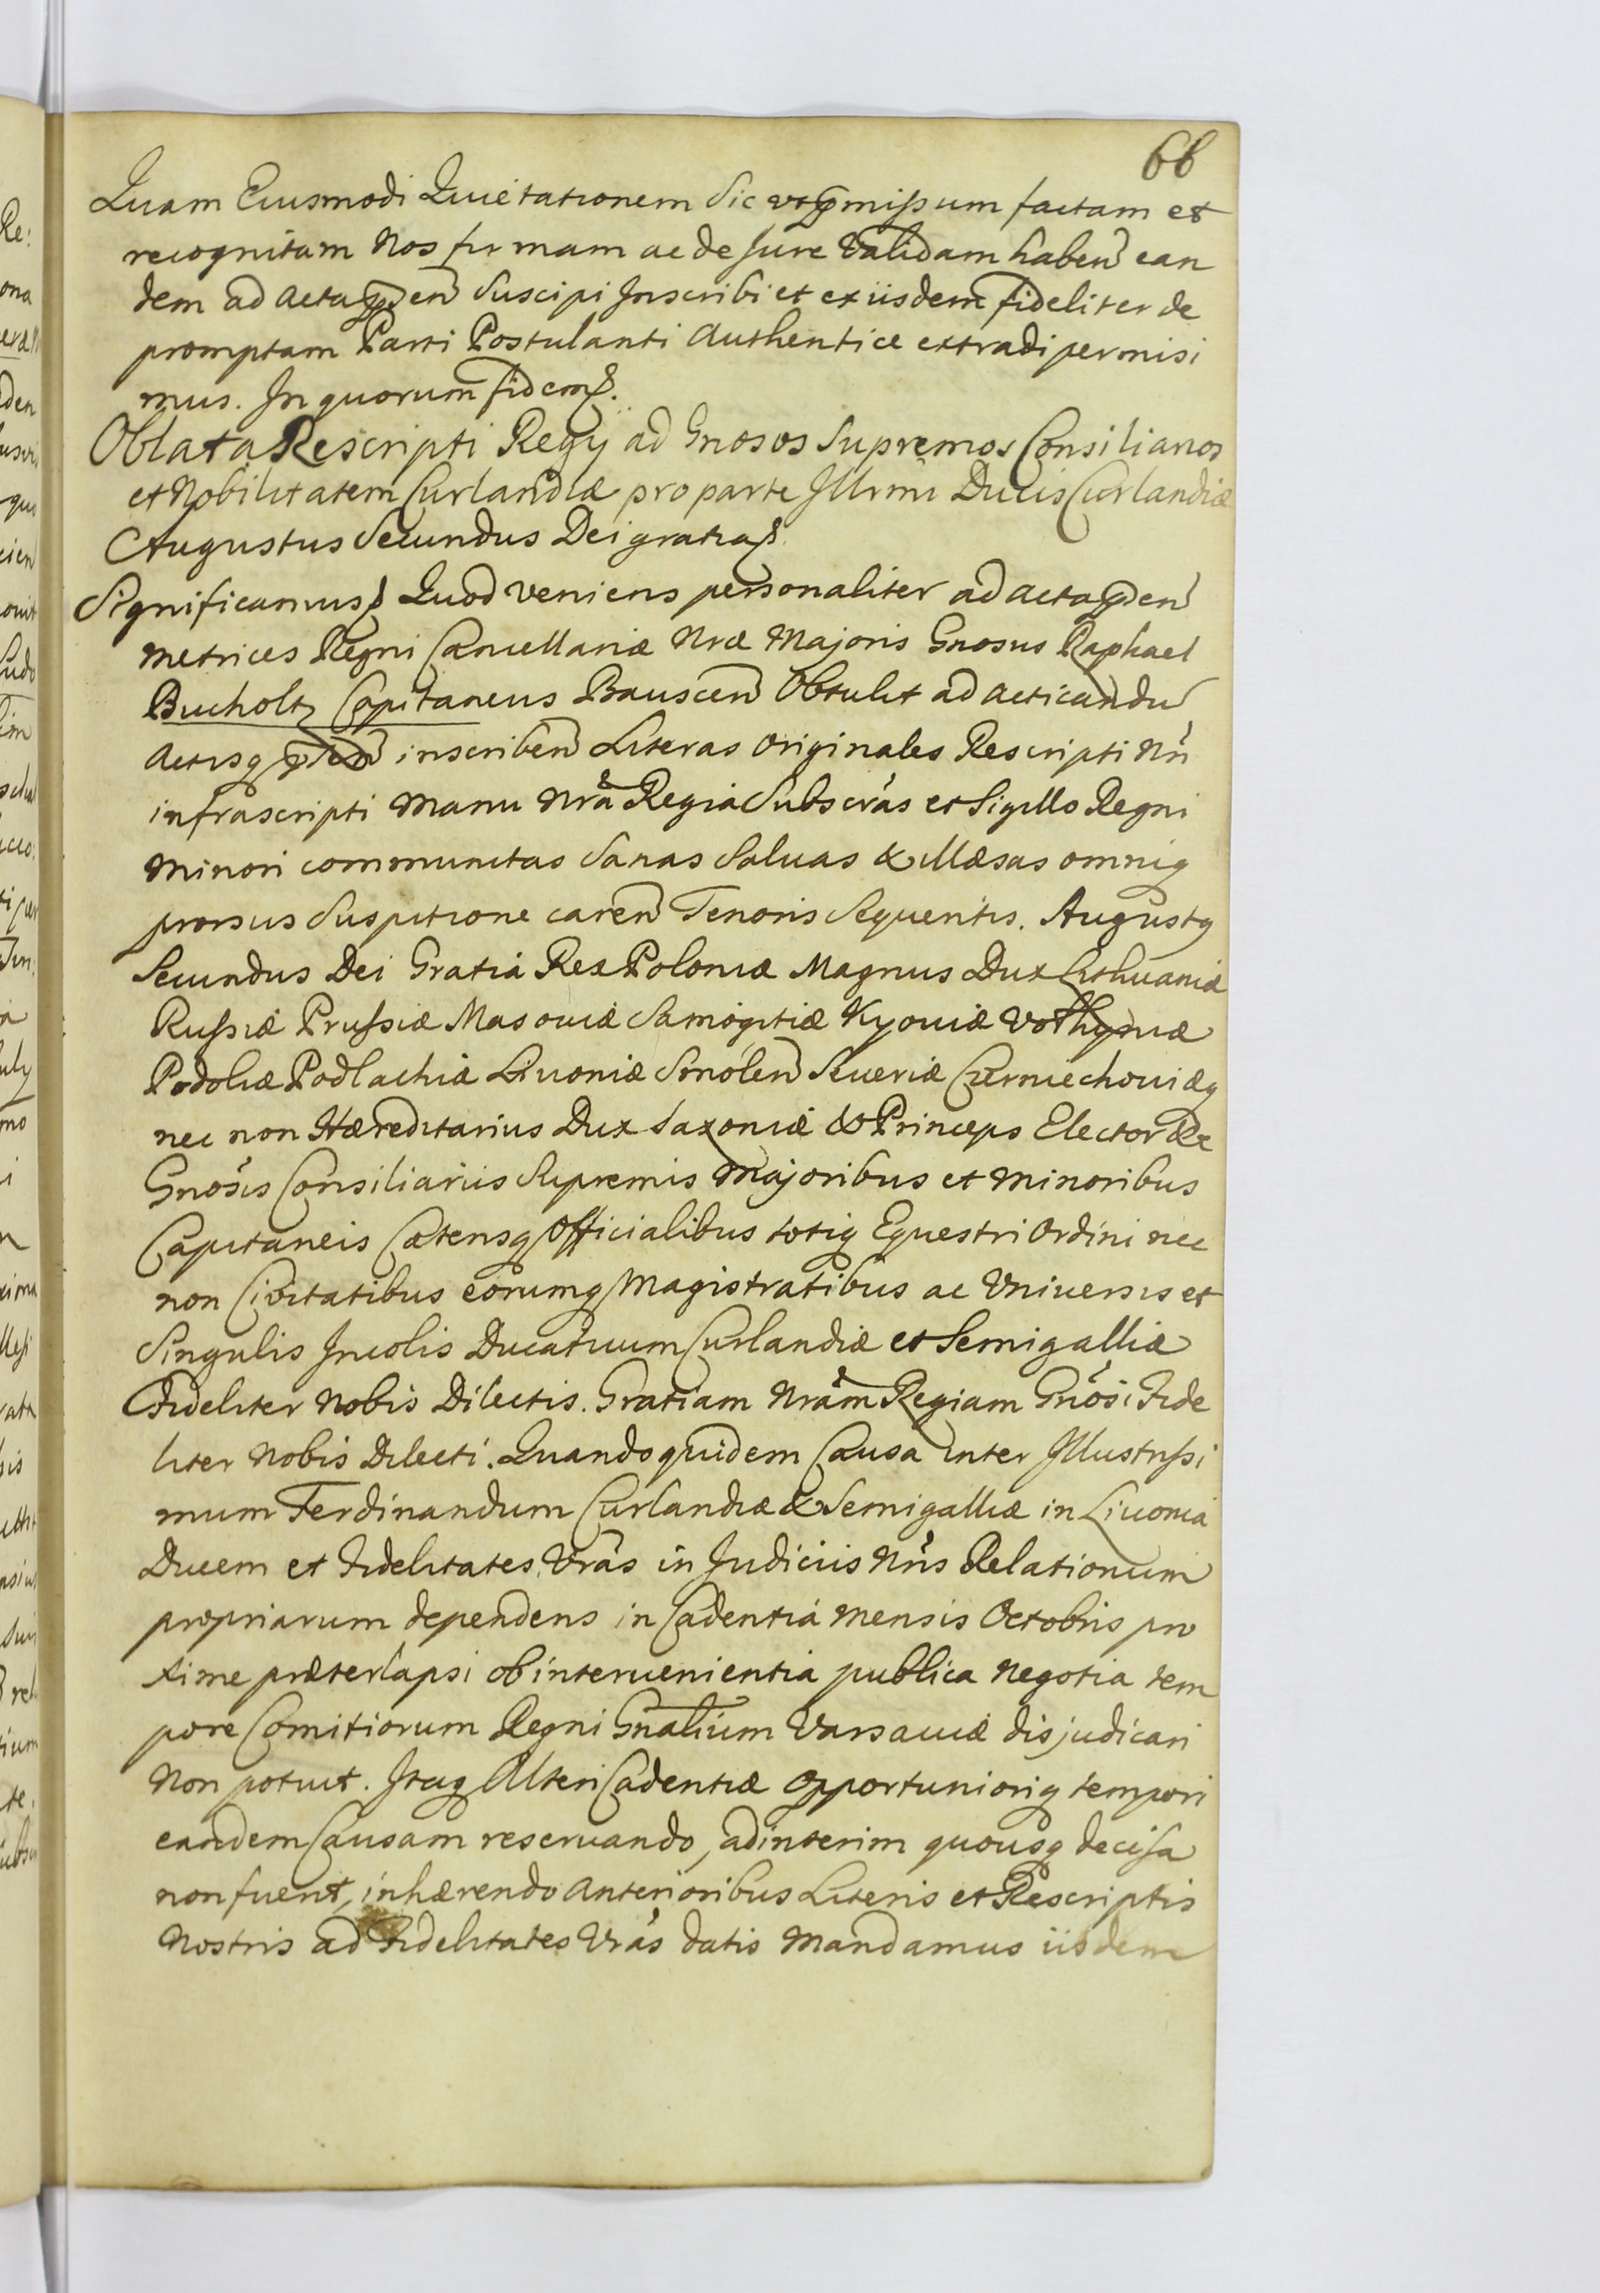 66
Quam Eiusmodi Quietationem Sic ut pmissum factam et
recognitam Nos firmam ac de Jure Validam haben ean
dem ad Acta pden Suscipi Inscribi et ex iisdem fideliter de
promptam Parti Postulanti Authentice extradi permisi
mus. In quorum fidem
Oblata Rescripti Regij ad Gnosos Supremos Consiliarios
et Nobilitatem Curlandiæ pro parte Illrmi Ducis Curlandiæ
Augustus Secundus Dei gratia
Significamus Quod veniens personaliter ad Acta pden
Metrices Regni Cancellariæ Nræ Majoris Gnosus Raphael
Bucholtz Capitaneus Bauscen Obtulit ad acticandu
Actisq pnted inscriben Literas Originales Rescripti Nri
infrascripti Manu Nrâ Regia Subscras et Sigillo Regni
Minori communitas Sanas Saluas & illæsas omniq
prorsus Suspitione caren Tenoris Sequentis. Augustq
Secundus Dei Gratiâ Rex Poloniæ Magnus Dux Lithuaniæ
Russiæ Prussiæ Masouiæ Samogitiæ Kyouiæ Volhyniæ
Podoliæ Podlachiæ Liuoniæ Smolen Seueriæ Czerniechouiæq
nec non Hæreditarius Dux Saxoniæ & Princeps Elector
Gnosis Consiliariis Supremis Majoribus et Minoribus
Capitaneis Cæterisq Officialibus totiq Equestri Ordini nec
non Civitatibus eorumq Magistratibus ac Vniuersis et
Singulis Incolis Ducatuum Curlandiæ et Semigalliæ
Fideliter Nobis Dilectis. Gratiam Nram Regiam Gnosi Fide
liter Nobis Dilecti. Quandoquidem Causa inter Illustrissi
mum Ferdinandum Curlandiæ & Semigalliæ in Liuonia
Ducem et Fidelitates Vras in Judiciis Nris Relationum
propriarum dependens in Cadentiâ Mensis Octobris pro
xime præterlapsi ob interuenientia publica Negotia tem
pore Comitiorum Regni Gnalium Varsauiæ disjudicari
Non potuit. Itaq Alteri Cadentiæ Opportunioriq tempori
eandem Causam reseruando, ad interim quousq decisa
non fuerit, inhærendo Anterioribus Literis et Rescriptis
Nostris ad Fidelitates Vras datis Mandamus iisdem